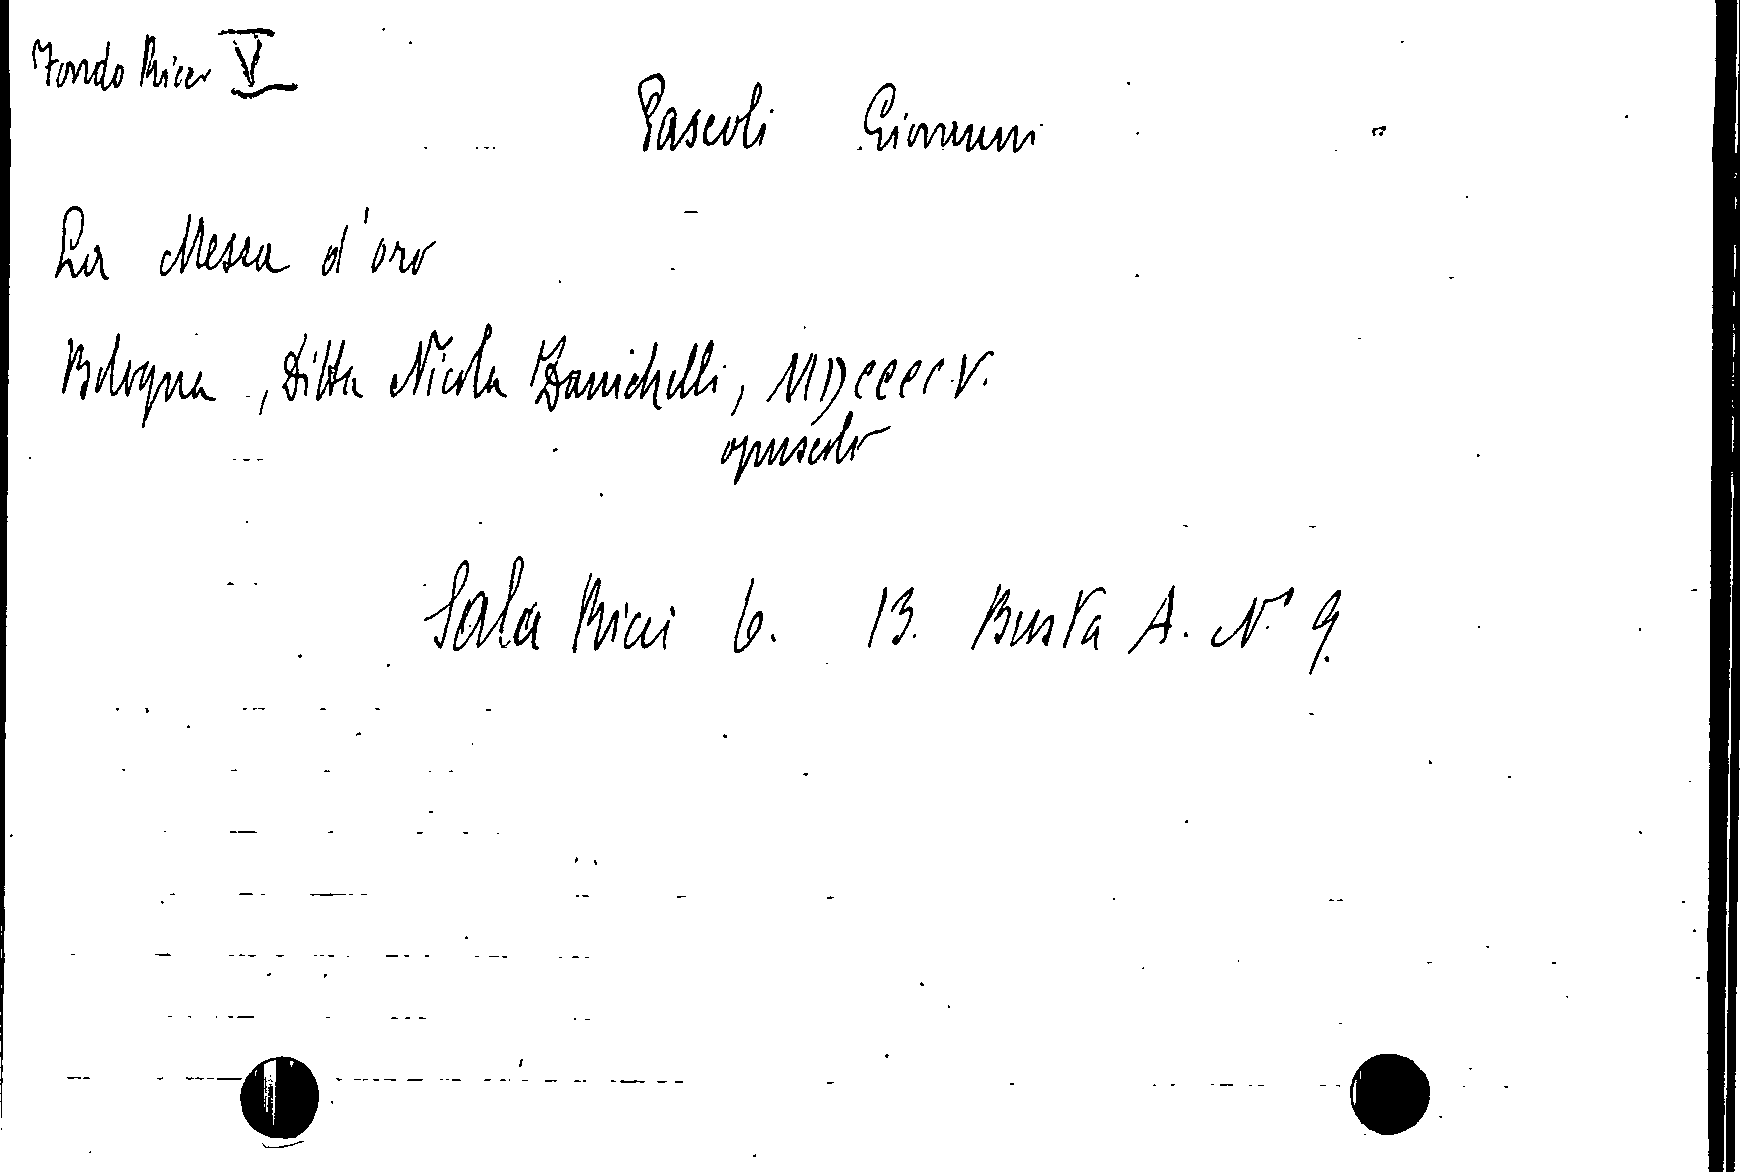 Fondo Ricci V
Pascoli Giovanni
La Messa d'oro
Bologna, Ditta Nicola Zanichelli, MDCCCCV.
opuscolo
Sala Ricci 6. 13. Busta A. N° 9.